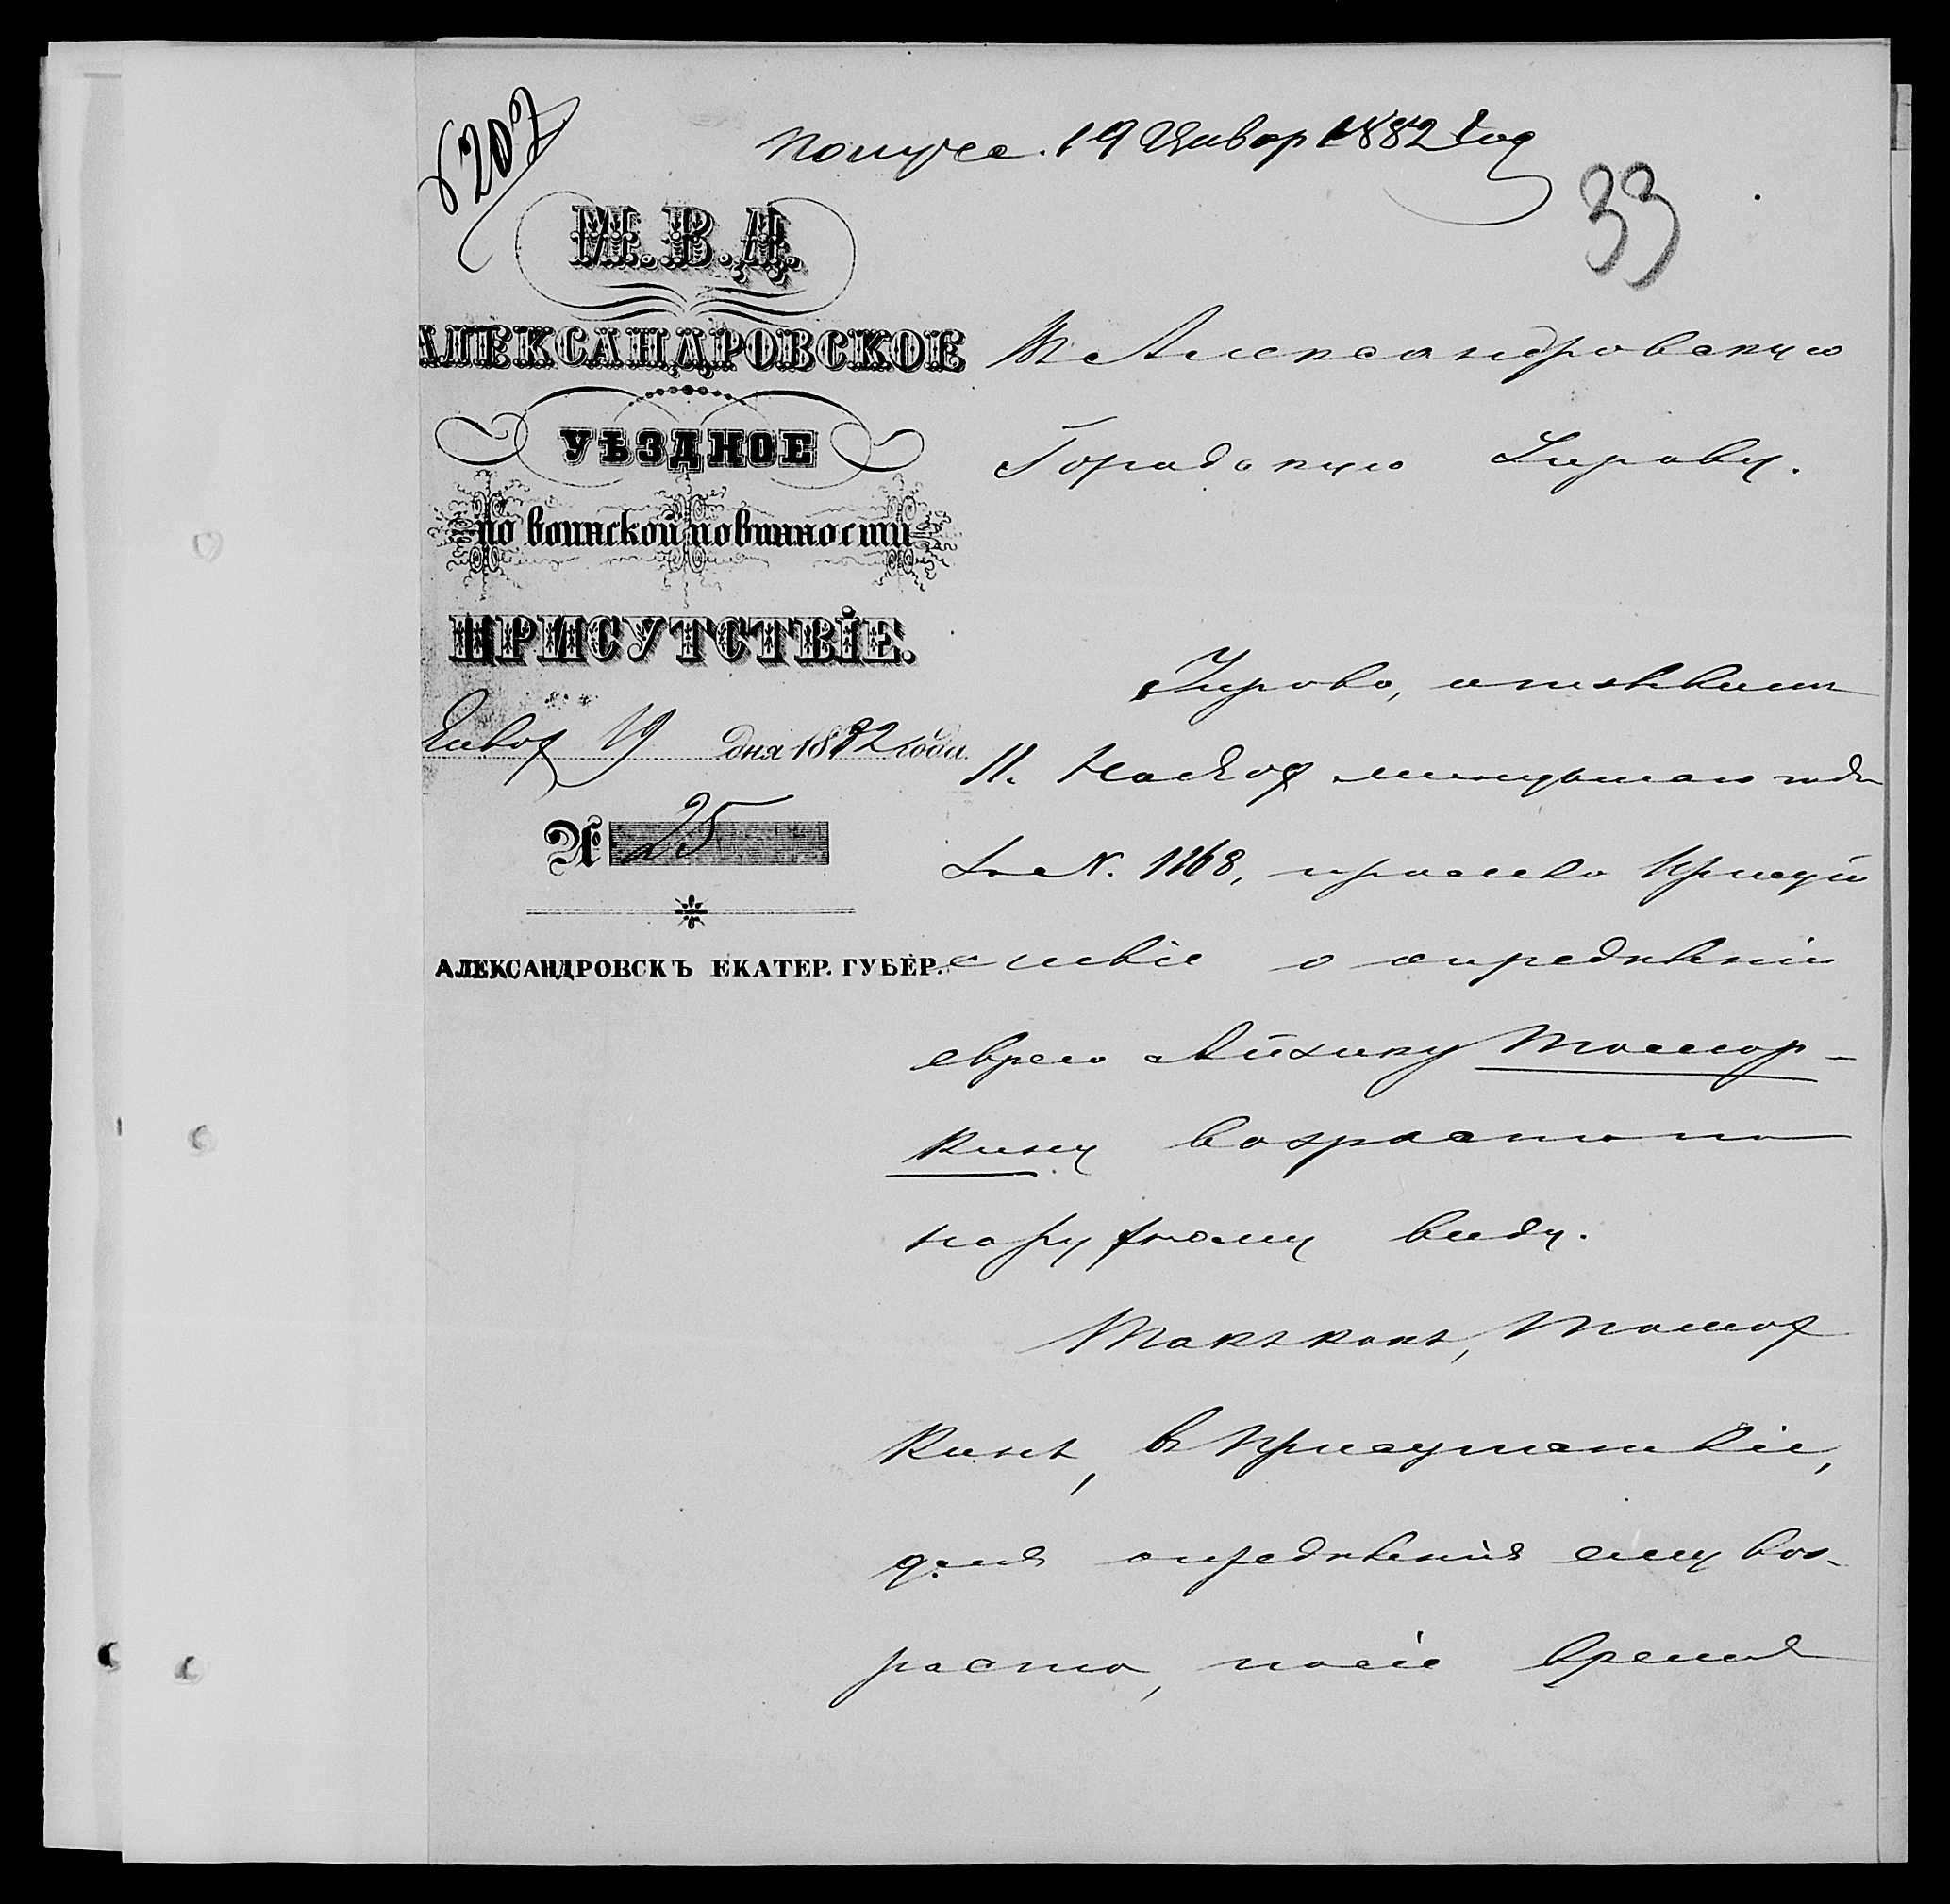 6207
Получе. 19 Январ 1882 год
33
М.В.Д.
АЛЕКСАНДРОВСКОЕ
УѢЗДНОЕ
по воинской повинности
ПРИСУТСТВІЕ.
Январ 19 дня 1882 года.
№ 25
АЛЕКСАНДРОВСКЪ ЕКАТЕР. ГУБЕР.
Въ Александровскую
Городскую Управу.
Управа,
11. Нояб минувшаго года
за N. 1168, просила Присут
ствіе о опредѣленіи
еврею Айзику Темор-
кину возраста по
наружному виду.
Такъ какъ, Темор
кинъ, въ Присутствіе,
для опредѣленія ему воз-
раста, в сіе время